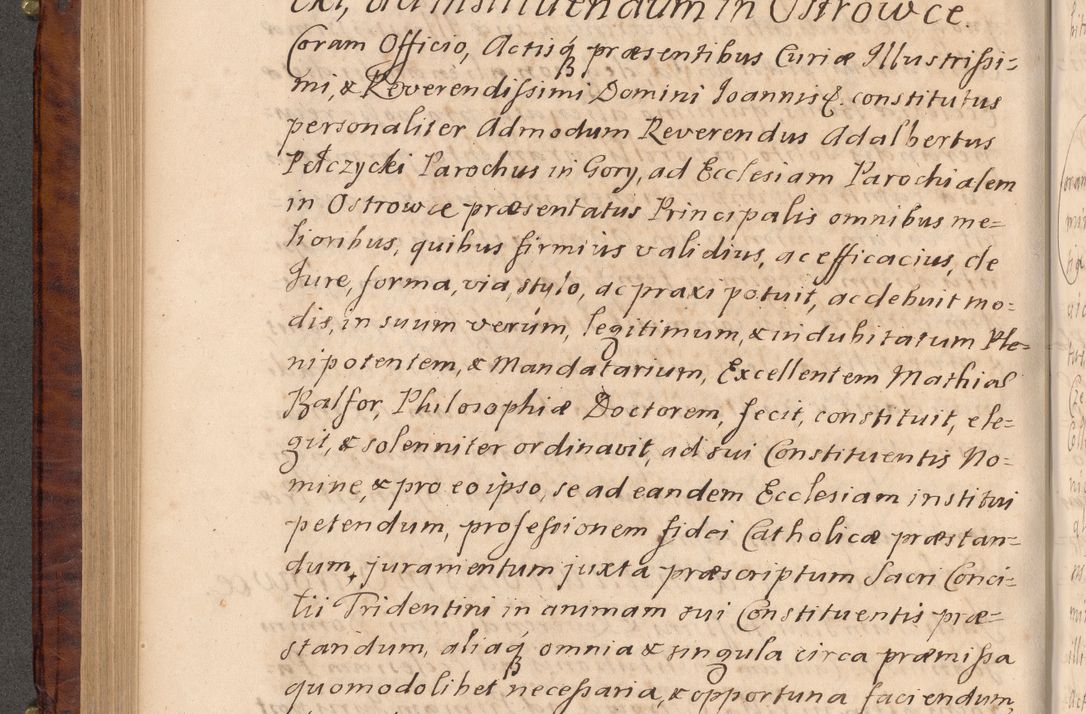 cki, ad instituendum in Ostrowce.
Coram Officio, Actisq́ꝫ præsentibus Curiæ Illustrissi=
mi, & Reverendissimi Domini Ioannis &. constitutus
personaliter Admodum Reverendus Adalbertus
Pełczycki Parochus in Gory, ad Ecclesiam Parochialem
in Ostrowce præsentatus Principalis omnibus me=
lioribus, quibus firmius validius, ac efficacius, de
Iure, forma, via, stylo, ac praxi potuit, ac debuit mo=
dis, in suum verúm, legitimum, & indubitatum Ple=
nipotentem, & Mandatarium, Excellentem Mathiam
Balfor, Philosophiæ Doctorem, fecit, constituit, ele=
git, & solenniter ordinavit, ad sui Constituentis No=
mine, & pro eo ipso, se ad eandem Ecclesiam institui
petendum, professionem fidei Catholicæ præstan=
dum, juramentum juxta præscriptum Sacri Conci=
lii Tridentini in animam sui Constituentis præ=
standum, aliaq́ꝫ omnia & singula circa præmissa
quomodolibet necessaria, & opportuna faciendum,